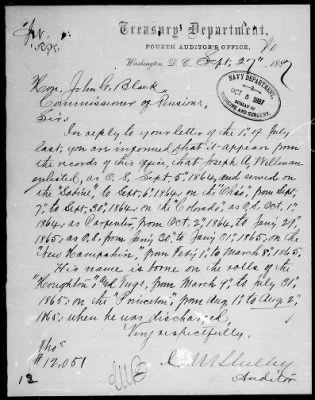 Treasury Department,
FOURTH AUDITOR'S OFFICE,
Washington, D. C., Sept. 27th, 1887
NAVY DEPARTMENT,
OCT 5 1887
BUREAU OF
MEDICINE AND SURGERY.
Hon. John C. Black,
Commissioner of Pensions,
Sir:
In reply to your letter of the 1st of July
last, you are informed that it appears from
the records of this office, that Joseph A. Wellman
enlisted, as O. S. Sept. 5th 1864, and served on
the "Sabine", to Sept. 6th, 1864, on the "Ohio", from Sept.
7th, to Sept. 30th, 1864, on the "Colorado", as O.S. Oct. 1st,
1864, as Carpenter, from Oct. 2d, 1864, to Jan'y 29th
1865, as O.S. from Jan'y 30th to Jan'y 31st, 1865, on the
"New Hampshire", from Feb'y 1st, to March 8th, 1865.
His name is borne on the rolls of the
"Houghton", and Tugs, from March 9th, to July 31st
1865, on the "Princeton", from Aug. 1st, to Aug. 2d,
1865, when he was discharged.
Very respectfully,
# 12,051
Auditor
12